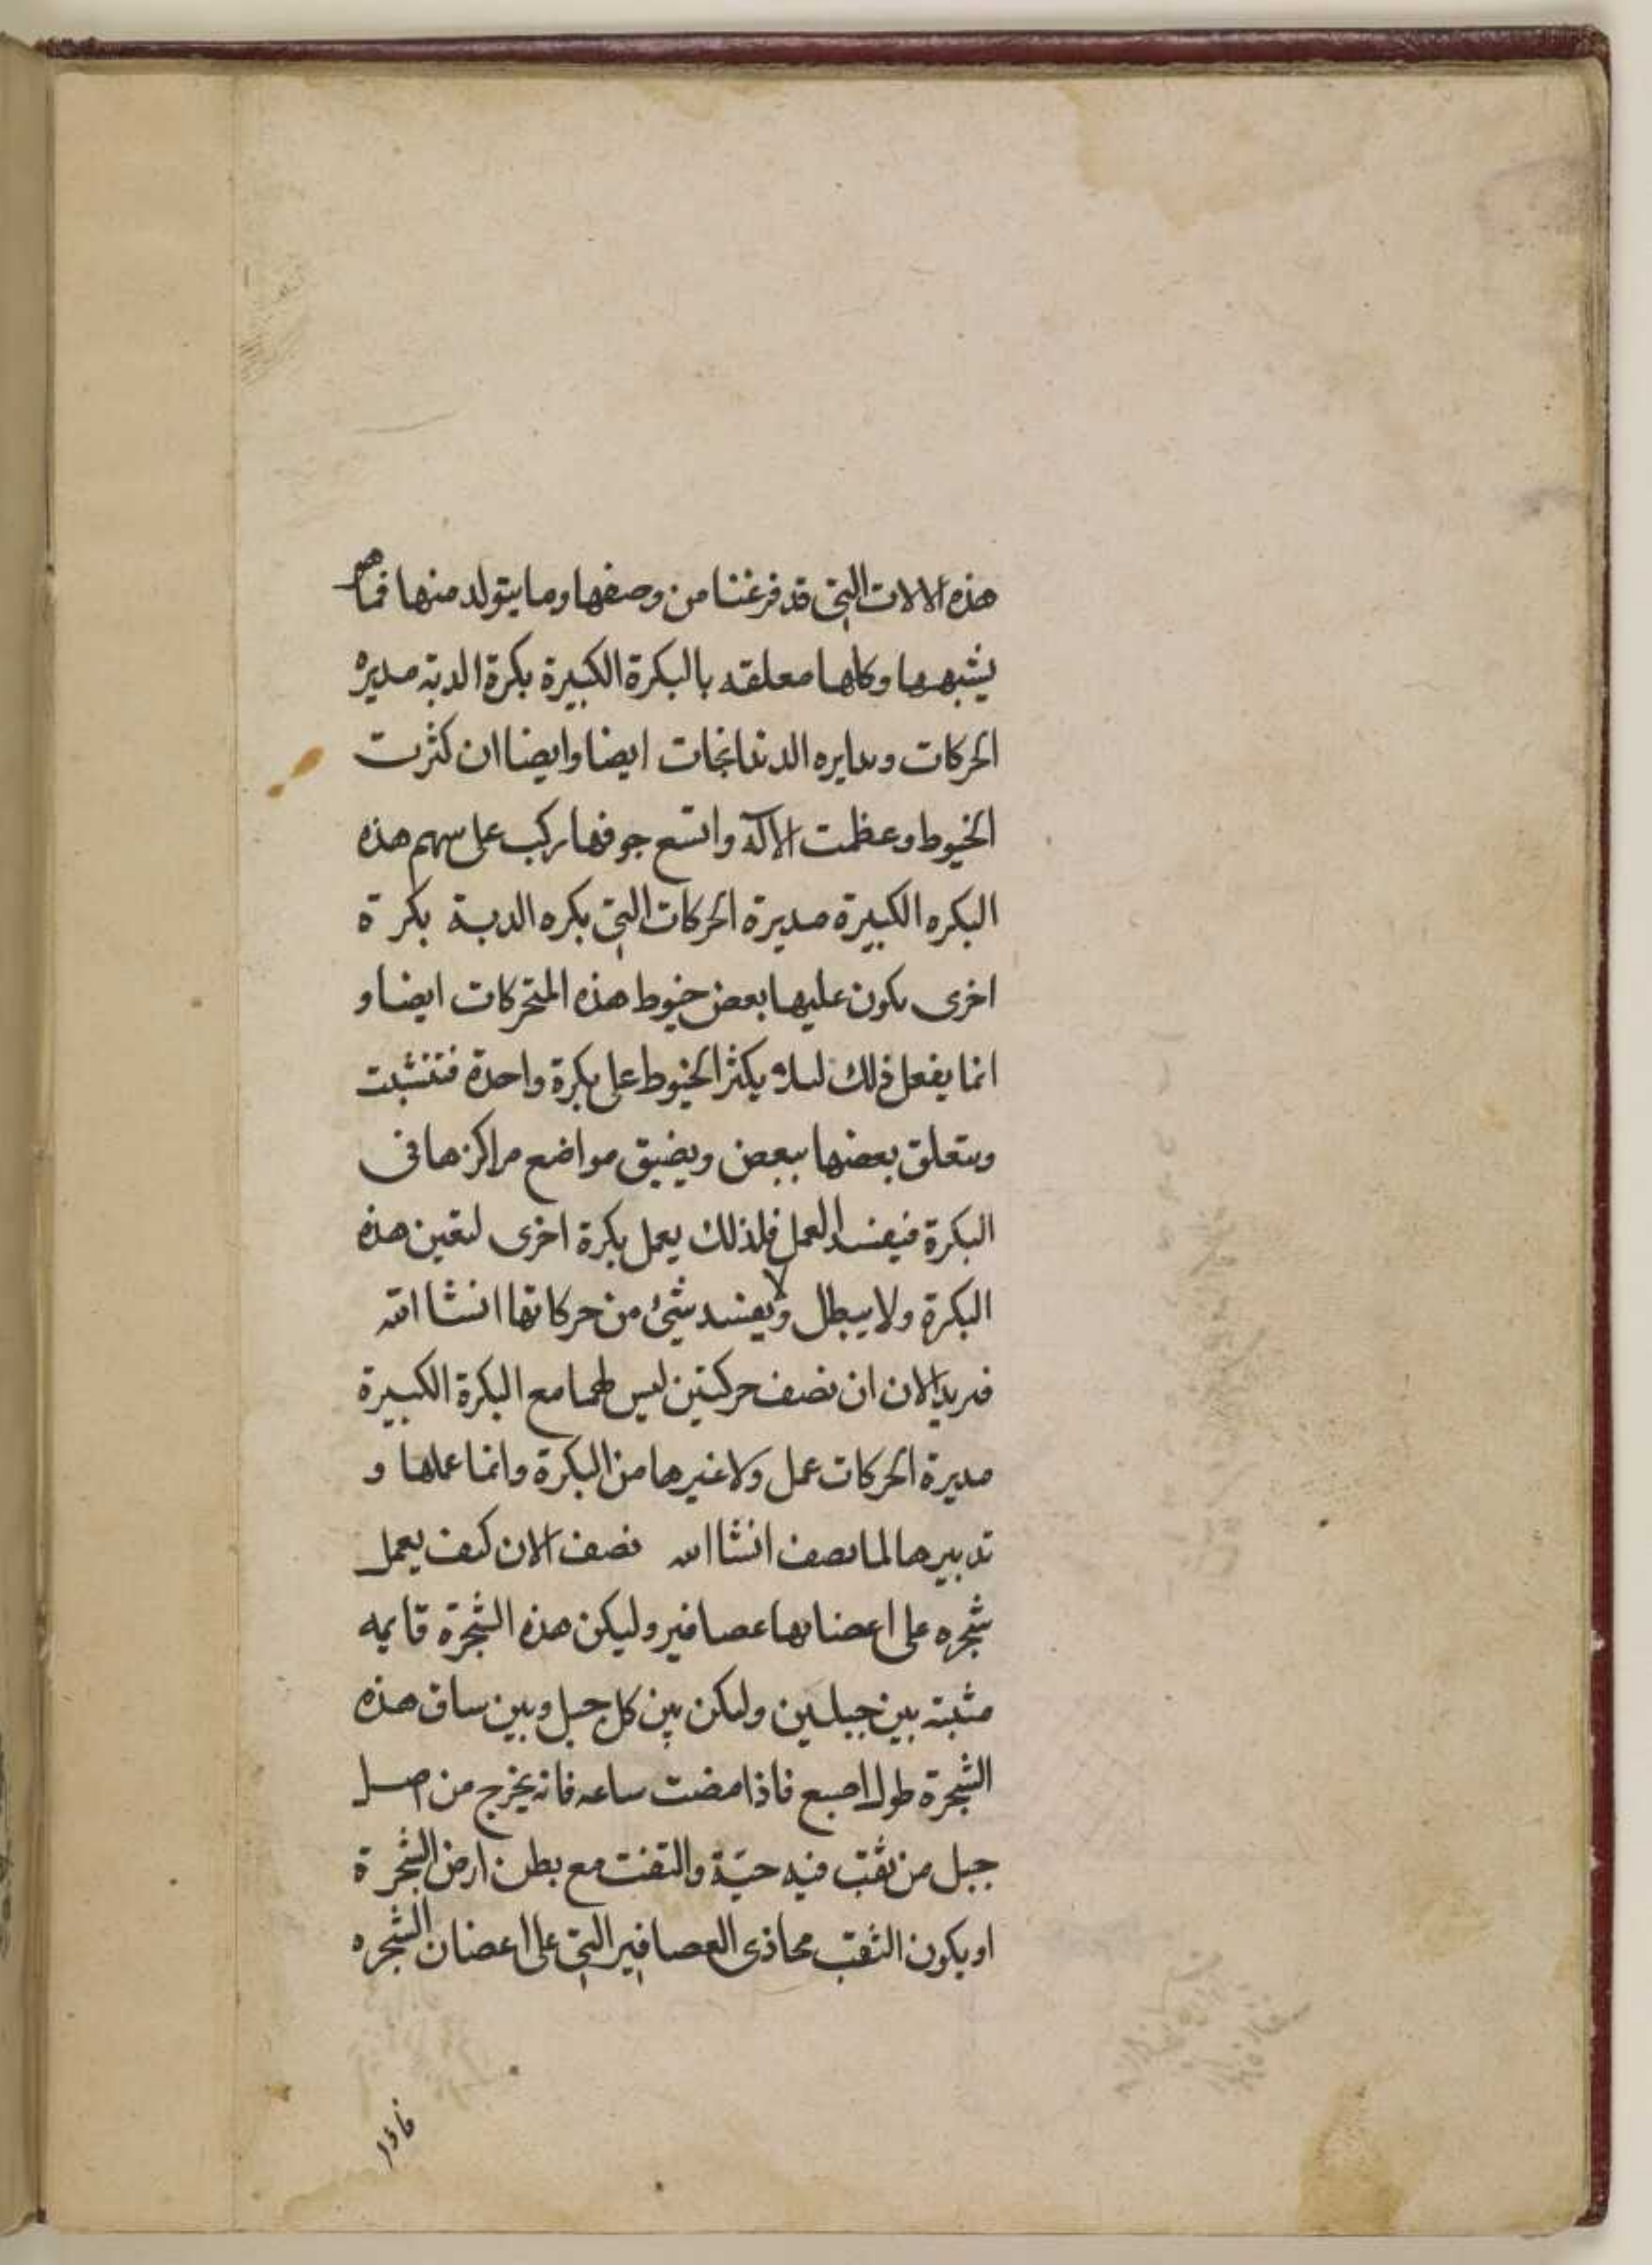 هذه الالات التي قد فرغنا من وصفها وما يتولد منها فما هو
يشبهها وكلها معلقه بالبكرة الكبيرة بكرة الدبة مديرة
الحركات وبدايره الدندانجات ايضا وايضا ان كثرت
الخيوط وعظمت الالة واتسع جوفها ركب على سهم هذه
البكره الكبيرة مديرة الحركات التي بكره الدبة بكرة
اخرى يكون عليها بعض خيوط هذه المتحركات ايضا و
انما يفعل ذلك لىلا يكثر الخيوط على بكرة واحدة فتنشبت
ويتعلق بعضها ببعض ويضيق مواضع مراكزها فى
البكرة فيفسد العمل فلذلك يعمل بكرة اخرى لتعين هذه
البكرة ولا يبطل ولا يفسد شئ من حركاتها انشا الله
فنريد الان ان نصف حركتين ليس لهما مع البكرة الكبيرة
مديرة الحركات عمل ولا غيرها من البكرة وانما عملها و
تدبيرها لما نصف انشا الله نصف الان كيف يعمل
شجره على اغصانها عصافير وليكن هذه الشجرة قايمه
مثبتة بين جبلين وليكن بين كل جبل وبين ساق هذه
الشجرة طول اصبع فاذا مضت ساعه فانه يخرج من اصل
جبل من ثقب فيه حية والتفت مع بطن ارض الشجرة
او يكون الثقب محاذى العصافير التي على اغصان الشجره
فاذا